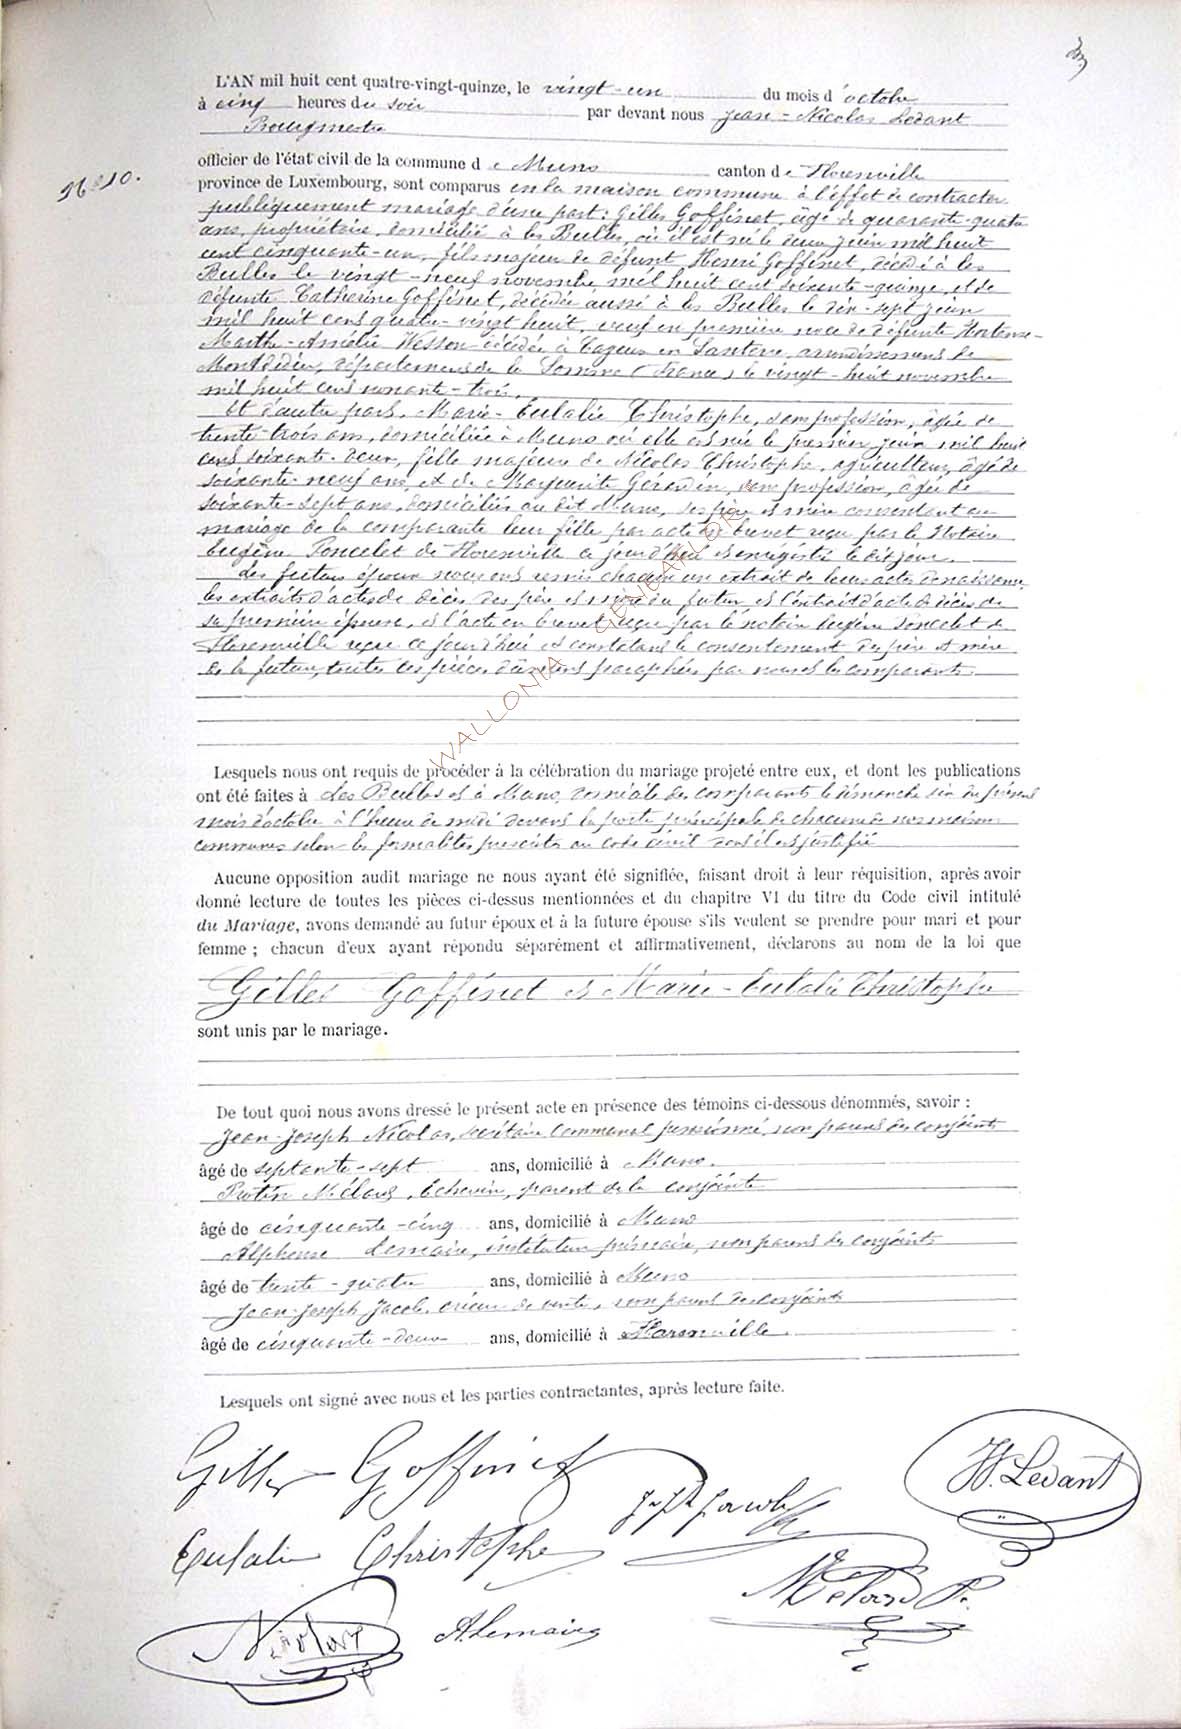 L'AN mil huit cent quatre-vingt-quinze, le vingt-un du mois d'octobre
à cinq heures du soir par devant nous Jean-Nicolas Ledant
Bourgmestre
officier de l'état civil de la commune de Muno canton de Florenville
N° 10.
province de Luxembourg, sont comparus en la maison commune à l'effet de contracter
publiquement mariage d'une part: Gilles Goffinet, âgé de quarante-quatre
ans, propriétaire, domicilié à les Bulles, où il est né le deux juin mil huit
cent cinquante-un, fils majeur de défunt Henri Goffinet, décédé à les
Bulles le vingt-neuf novembre mil huit cent soixante-quinze, et de
défunte Catherine Goffinet, décédée aussi à les Bulles le dix-sept juin
mil huit cent quatre-vingt huit, veuf en première noce de défunte Hortense-
Marthe-Amélie Wesson décédée à en Santerre, arrondissement de
Montdidier, département de la Somme (France), le vingt-huit novembre
mil huit cent nonante-trois.
Et d'autre part, Marie-Eulalie Christophe, sans profession, âgée de
trente-trois ans, domiciliée à Muno où elle est née le premier juin mil huit
cent soixante-deux, fille majeure de Nicolas Christophe, agriculteur, âgé de
soixante-neuf ans, et de Marguerite Gérardin, sans profession, âgée de
soixante-sept ans, domiciliés au dit Muno, ses père et mère consentant au
mariage de la comparante leur fille par acte en brevet reçu par le Notaire
Eugène Poncelet de Florenville ce jourd'hui et enregistré le dit jour.
Les futurs époux nous ont remis chacun un extrait de leurs actes de naissance,
les extraits d'actes de décès des père et mère du futur et l'extrait d'acte de décès de
sa première épouse, et l'acte en brevet reçu par le notaire Eugène Poncelet de
Florenville reçu ce jourd'hui et constatant le consentement des père et mère
de la future, toutes ces pièces dûment paraphées par nous et les comparants.
WALLONIA GENEANLOR
Lesquels nous ont requis de procéder à la célébration du mariage projeté entre eux, et dont les publications
ont été faites à Les Bulles et à Muno, domicile des comparants le dimanche six du présent
mois d'octobre à l'heure de midi devant la porte principale de chacune de nos maisons
communes selon les formalités prescrites au code civil dont il est justifié
Aucune opposition audit mariage ne nous ayant été signifiée, faisant droit à leur réquisition, après avoir
donné lecture de toutes les pièces ci-dessus mentionnées et du chapitre VI du titre du Code civil intitulé
du Mariage, avons demandé au futur époux et à la future épouse s'ils veulent se prendre pour mari et pour
femme ; chacun d'eux ayant répondu séparément et affirmativement, déclarons au nom de la loi que
Gilles Goffinet et Marie-Eulalie Christophe
sont unis par le mariage.
De tout quoi nous avons dressé le présent acte en présence des témoins ci-dessous dénommés, savoir :
Jean-Joseph Nicolas, secrétaire communal pensionné, non parent des conjoints
âgé de septante-sept ans, domicilié à Muno.
Protin Mélard, Echevin, parent de la conjointe
âgé de cinquante-cinq ans, domicilié à Muno
Alphonse Lemaire, instituteur primaire, non parent des conjoints
âgé de trente-quatre ans, domicilié à Muno
Jean-Joseph Jacob, crieur de vente, non parent des conjoints
âgé de cinquante-deux ans, domicilié à Florenville.
Lesquels ont signé avec nous et les parties contractantes, après lecture faite.
Gilles Goffinet
Jh Jacob
N. Ledant
Eulalie Christophe
Mélard P.
Nicolas
A Lemaire